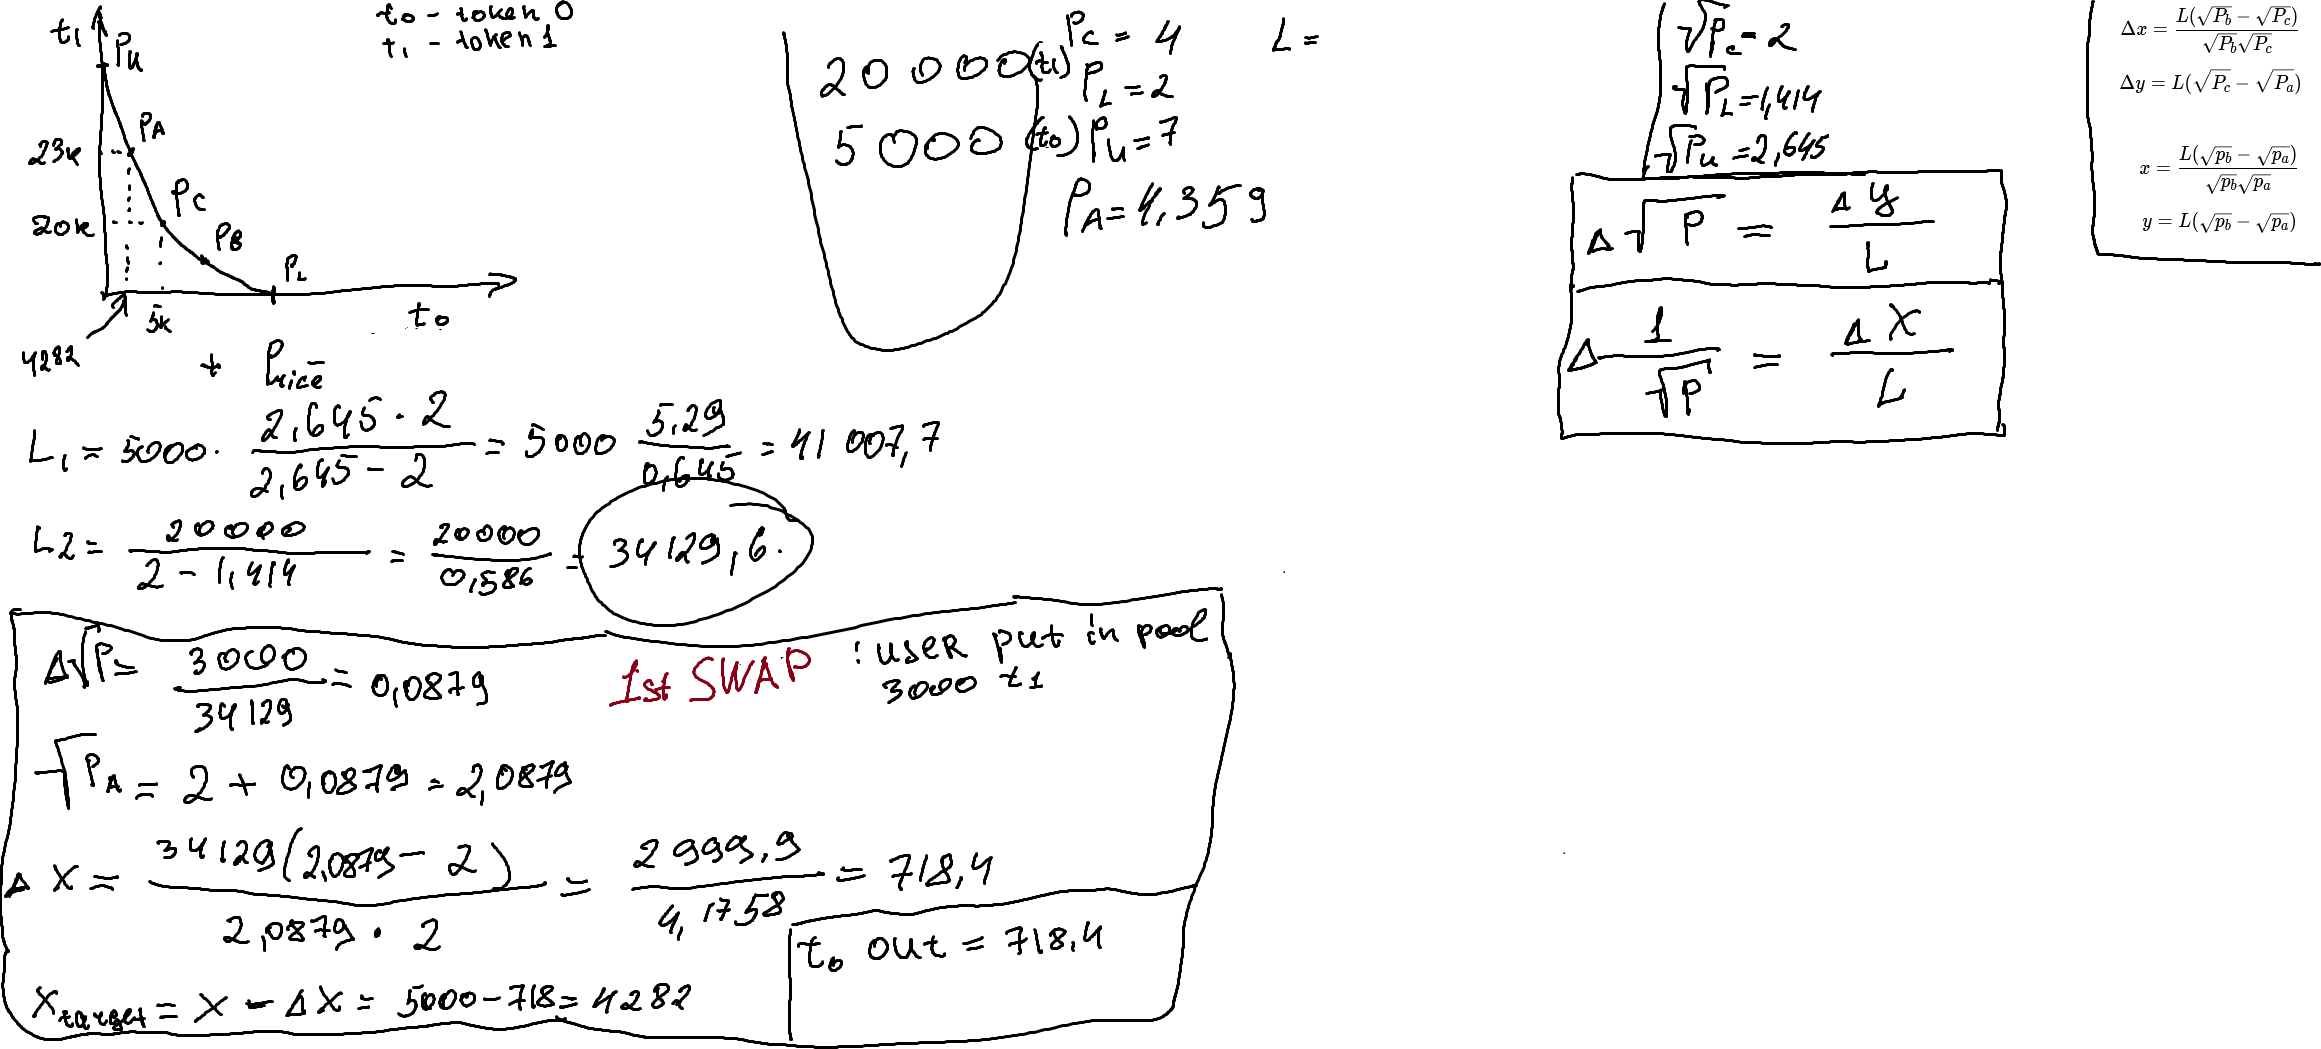 t₀ - token 0
t₁ - token 1
t₁
Pu
PA
23k
Pc
20k
PB
PL
5k
t₀
4282
+ Price
20000(t₁)
5000(t₀)
Pc = 4
PL = 2
Pu = 7
PA = 4,359
L =
√Pc = 2
√PL = 1,414
√Pu = 2,645
Δ√P = Δy / L
Δ 1/√P = ΔX / L
Δx = L(√P_b − √P_c) / √P_b√P_c
Δy = L(√P_c − √P_a)
x = L(√p_b − √p_a) / √p_b√p_a
y = L(√p_b − √p_a)
L₁ = 5000 · (2,645 · 2) / (2,645 - 2) = 5000 5,29 / 0,645 = 41 007,7
L2 = 20000 / (2 - 1,414) = 20000 / 0,586 = 34129,6.
Δ√P = 3000 / 34129 = 0,0879
1st SWAP : USER put in pool
3000 t1
√PA = 2 + 0,0879 = 2,0879
ΔX = 34129(2,0879 - 2) / 2,0879 · 2 = 2999,9 / 4,1758 = 718,4
t₀ out = 718,4
Xtarget = X - ΔX = 5000 - 718 = 4282